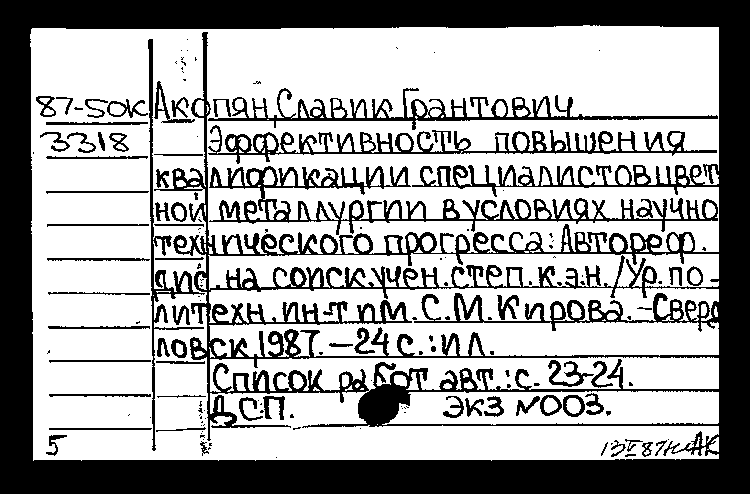 87-50к Акопян, Славик Грантович.
3318 Эффективность повышения
квалификации специалистов цвет
ной металлургии в условиях научно
технического прогресса: Автореф.
дис. на соиск. учен. степ. к.э.н. / Ур. по-
литехн. ин-т им. С.М. Кирова. - Сверд
ловск, 1987. - 24 с. : ил.
Список работ авт.: с. 23-24.
ДСП. экз №003.
5 АК